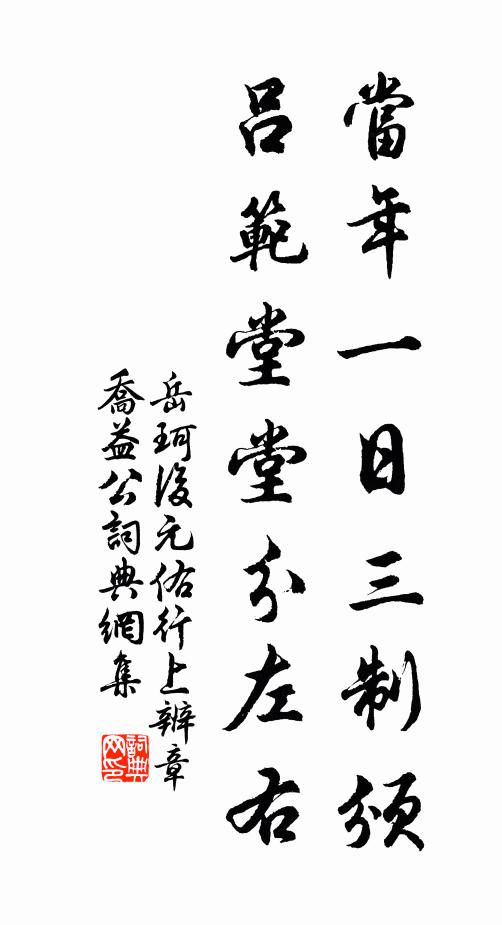 當年一日三制頒
呂範堂堂分左右
岳珂後元佑行上辨章
喬益公詞典網集
詞典网印